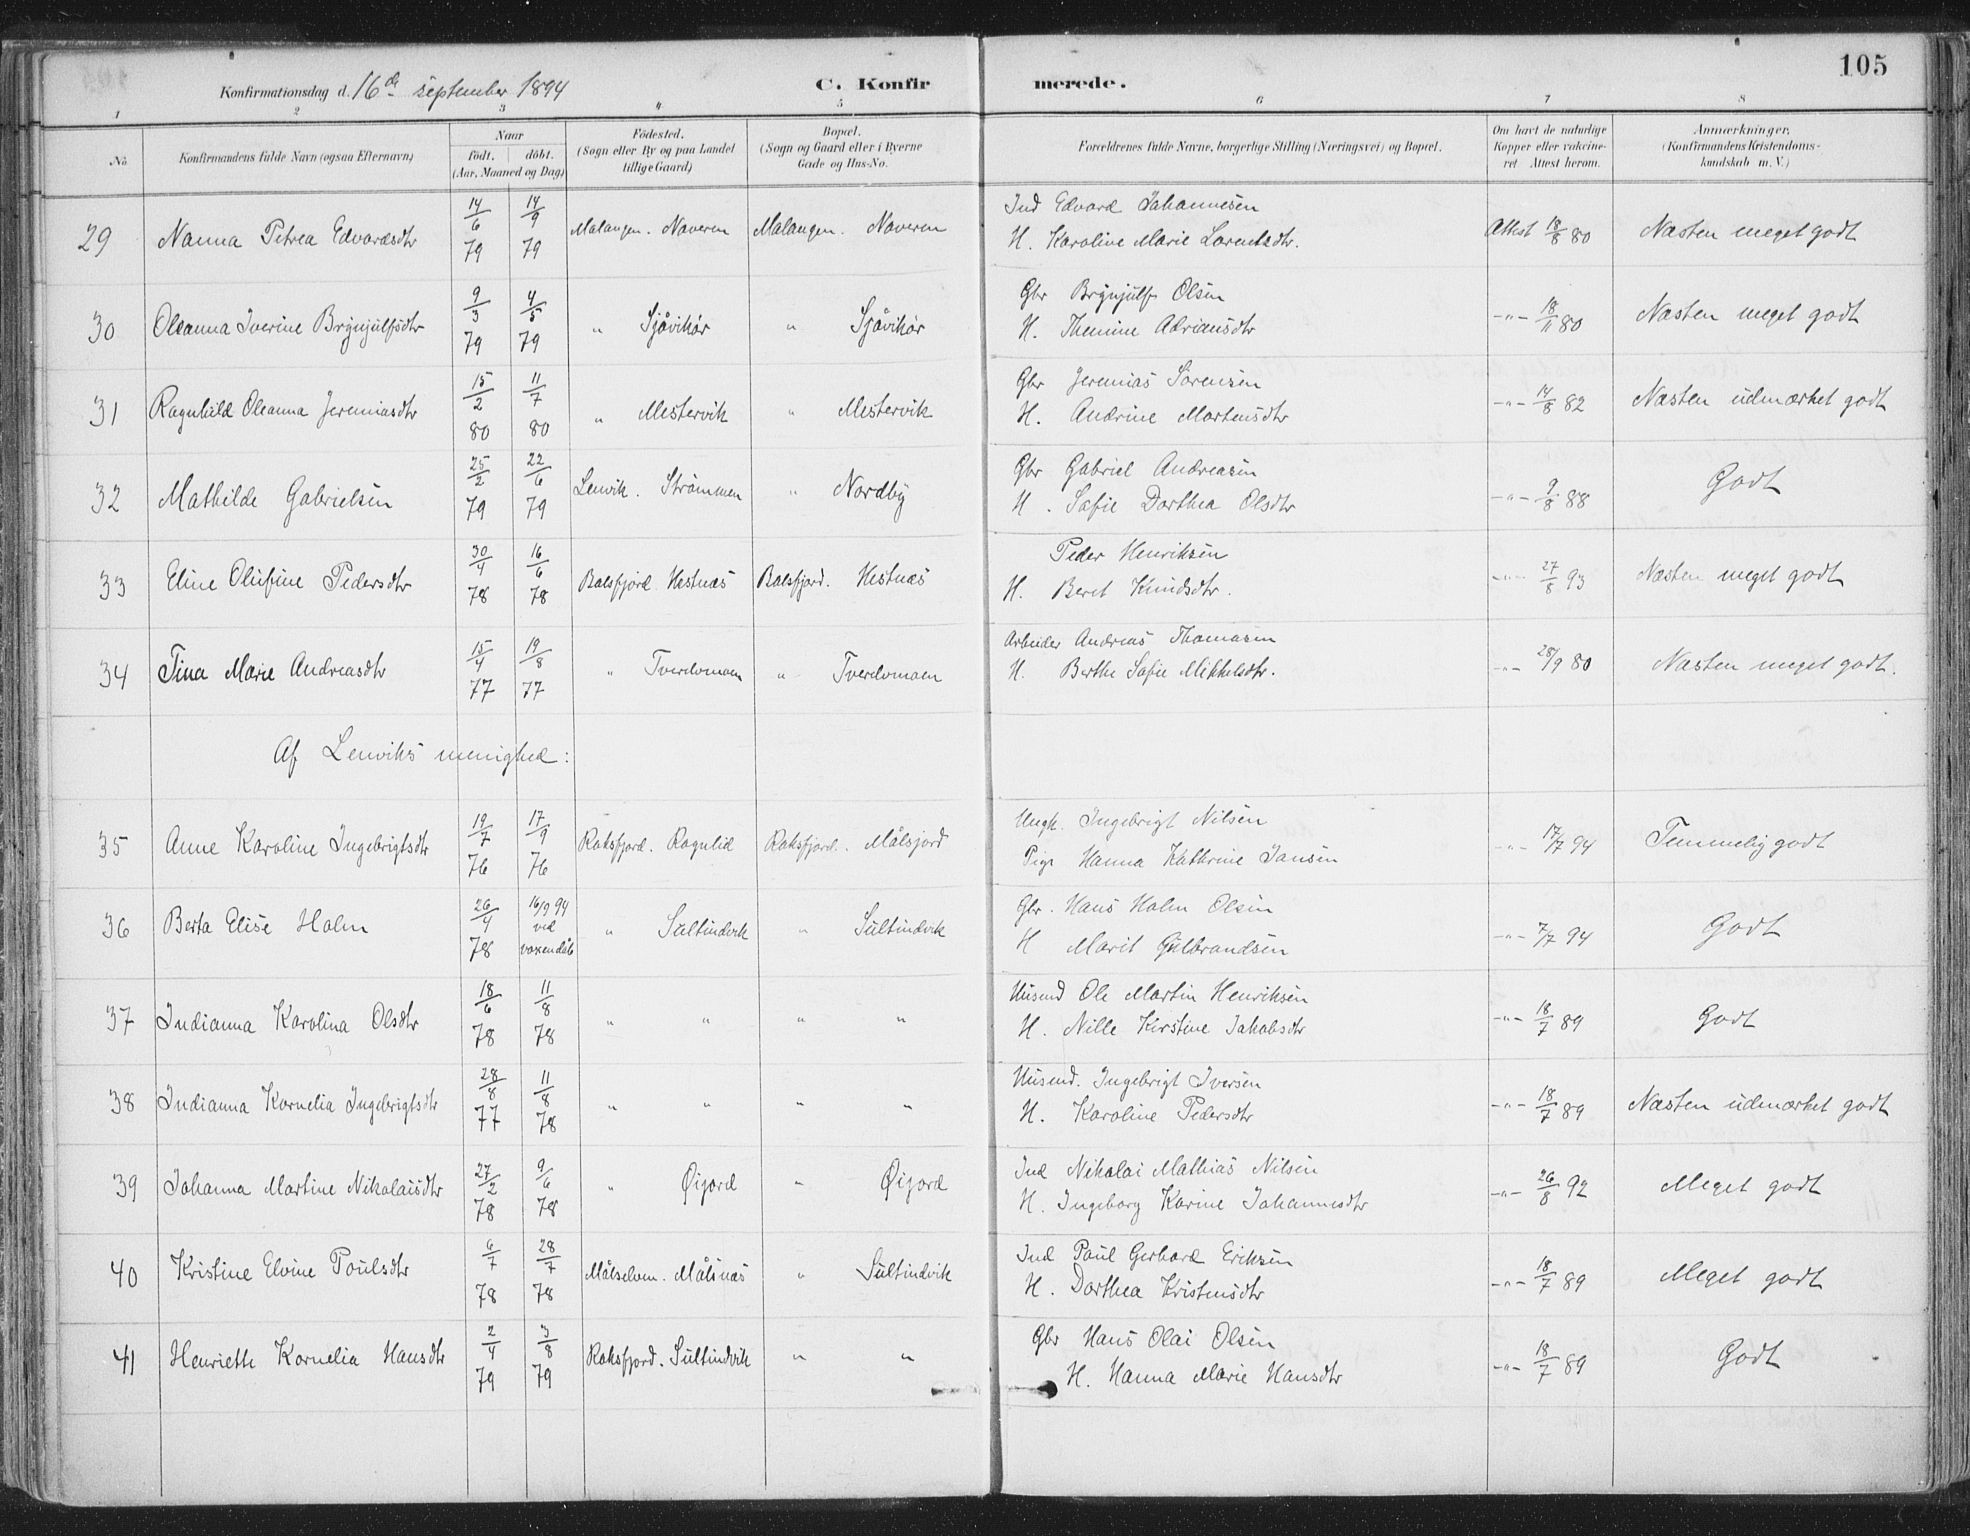 105
Konfirmationsdag d. 16de september 1894 C. Konfirmerede.
1 2 3 4 5 6 7 8
No
Konfirmandens fulde Navn (ogsaa Efternavn)
Naar
födt. döbt.
(Aar, Maaned og Dag)
Födested.
(Sogn eller By og paa Landet
tillige Gaard)
Bopæl.
(Sogn og Gaard eller i Byerne
Gade og Hus-No.
Forældrenes fulde Navne, borgerlige Stilling (Næringsvei) og Bopæl.
Om havt de naturlige
Kopper eller vakcine-
ret. Attest herom.
Anmærkninger.
(Konfirmandens Kristendoms-
kundskab m. V.)
29 Nanna Petrea Edvardsdtr 14/6 79 14/9 79 Malangen. Naveren Malangen. Naveren Ind Edvard Johannesen
H. Karoline Marie Lorentsdtr. Attest 18/8 80 Næsten meget godt
30 Oleanna Iverine Brynjulfsdtr 9/3 79 4/5 79 " Sjåvikør " Sjåvikør Gbr Brynjulf Olsen
H. Themine Adriansdtr -"- 18/11 80 Næsten meget godt
31 Ragnhild Oleanna Jeremiasdtr 15/2 80 11/7 80 " Mestervik " Mestervik Gbr Jeremias Sørensen
H. Andrine Mortensdtr -"- 14/8 82 Næsten udmærket godt
32 Mathilde Gabrielsen 25/2 79 22/6 79 Lenvik. Strømmen " Nordby Gbr Gabriel Andreasen
H. Sofie Dorthea Olsdtr -"- 9/8 88 Godt
33 Eline Olufine Pedersdtr 30/4 78 16/6 78 Balsfjord Hestnæs Balsfjord. Hestnæs Peder Henriksen
H. Beret Knudsdtr. -"- 27/8 93 Næsten meget godt
34 Tina Marie Andreasdtr 15/4 77 19/8 77 " Tverdvmoen " Tverdvmoen Arbeider Andreas Thomasen
H. Berthe Sofie Mikkelsdtr. -"- 28/9 80 Næsten meget godt.
Af Lenviks menighed:
35 Anne Karoline Ingebrigtsdtr 19/7 76 17/9 76 Roksfjord. Rognlid Roksfjord. Målsjord Ungk. Ingebrigt Nilsen
Pige Hanna Kathrine Jansen -"- 17/7 94 Temmelig godt
36 Berta Elise Holm 26/4 78 16/9 94 ved voxendåb " Sultindvik " Sultindvik Gbr. Hans Holm Olsen
H Marit Gulbrandsen -"- 7/7 94 Godt
37 Indianna Karolina Olsdtr 18/6 78 11/8 78 " " " " Husmd Ole Martin Henriksen
H. Nille Kirstine Jakobsdtr -"- 18/7 89 Godt
38 Indianna Kornelia Ingebrigtsdtr 28/8 77 11/8 78 " " " " Husmd. Ingebrigt Iversen
H. Karoline Pedersdtr -"- 18/7 89 Næsten udmærket godt
39 Johanna Martine Nikolaisdtr 27/2 78 9/6 78 " Øijord " Øijord Ind Nikolai Mathias Nilsen
H. Ingeborg Karine Johannesdtr -"- 26/8 92 Meget godt
40 Kristine Elvine Poulsdtr 6/7 78 28/7 78 Målselven. Målsnæs " Sultindvik Ind Paul Gerhard Eriksen
H. Dorthea Kristensdtr -"- 18/7 89 Meget godt
41 Henriette Kornelia Hansdtr 2/4 79 3/8 79 Roksfjord. Sultindvik " " Gbr Hans Olai Olsen
H. Hanna Marie Hansdtr -"- 18/7 89 Godt